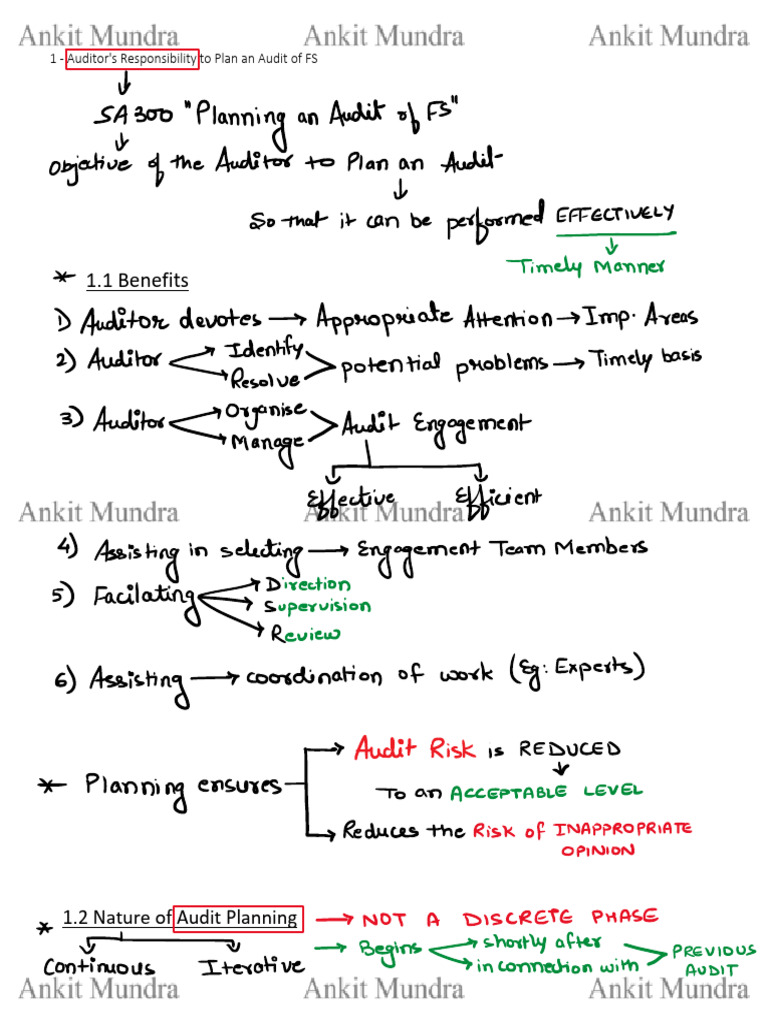 Ankit Mundra Ankit Mundra Ankit Mundra
1 - Auditor's Responsibility to Plan an Audit of FS
SA 300 "Planning an Audit of FS"
Objective of the Auditor to Plan an Audit
So that it can be performed EFFECTIVELY
Timely Manner
* 1.1 Benefits
1) Auditor devotes → Appropriate Attention → Imp. Areas
2) Auditor Identify Resolve potential problems → Timely basis
3) Auditor Organise Manage Audit Engagement
Effective Efficient
Ankit Mundra Ankit Mundra Ankit Mundra
4) Assisting in selecting → Engagement Team Members
5) Facilating Direction
Supervision
Review
6) Assisting → coordination of work (Eg: Experts)
Audit Risk is REDUCED
* Planning ensures To an ACCEPTABLE LEVEL
Reduces the Risk of INAPPROPRIATE
OPINION
* 1.2 Nature of Audit Planning → NOT A DISCRETE PHASE
→ Begins shortly after in connection with PREVIOUS AUDIT
Continuous Iterative
Ankit Mundra Ankit Mundra Ankit Mundra